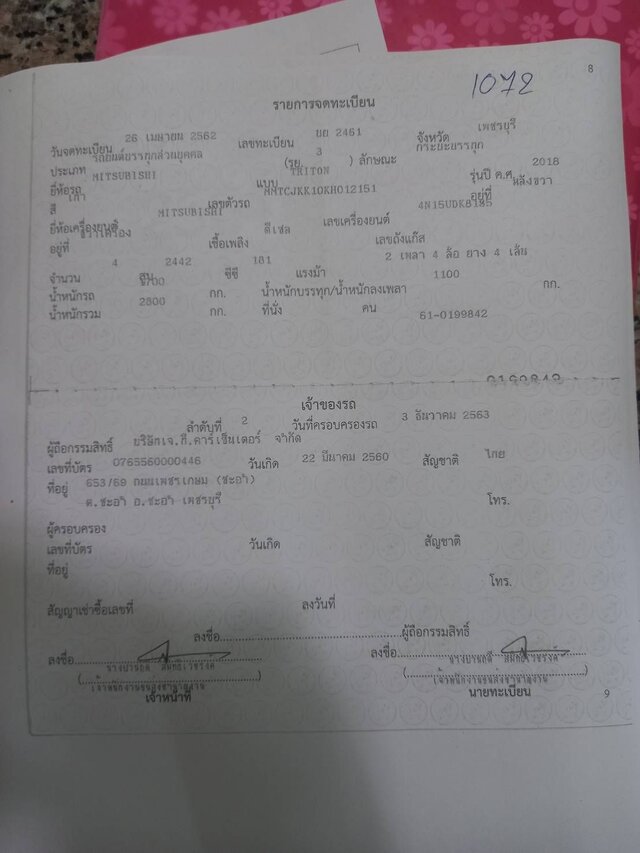 8
1072
รายการจดทะเบียน
วันจดทะเบียน 26 เมษายน 2562 เลขทะเบียน ขย 2461 จังหวัด เพชรบุรี
ประเภท รถยนต์บรรทุกส่วนบุคคล (รย. 3 ) ลักษณะ กระบะบรรทุก
ยี่ห้อรถ MITSUBISHI แบบ TRITON รุ่นปี ค.ศ. 2018
สี เทา เลขตัวรถ MMTCJKK10KH012151 อยู่ที่ หลังขวา
ยี่ห้อเครื่องยนต์ MITSUBISHI เลขเครื่องยนต์
อยู่ที่ เชื้อเพลิง ดีเซล เลขถังแก๊ส
จำนวน 4 สูบ 2442 ซีซี 181 แรงม้า 2 เพลา 4 ล้อ ยาง 4 เส้น
น้ำหนักรถ 1700 กก. น้ำหนักบรรทุก/น้ำหนักลงเพลา 1100 กก.
น้ำหนักรวม 2800 กก. ที่นั่ง คน 61-0199842
เจ้าของรถ
ลำดับที่ 2 วันที่ครอบครองรถ 3 ธันวาคม 2563
ผู้ถือกรรมสิทธิ์ บริษัทเจ.ที.คาร์เซ็นเตอร์ จำกัด
เลขที่บัตร 0765560000446 วันเกิด 22 มีนาคม 2560 สัญชาติ ไทย
ที่อยู่ 653/69 ถนนเพชรเกษม (ชะอำ)
ต.ชะอำ อ.ชะอำ เพชรบุรี โทร.
ผู้ครอบครอง
เลขที่บัตร วันเกิด สัญชาติ
ที่อยู่
โทร.
สัญญาเช่าซื้อเลขที่ ลงวันที่
ลงชื่อ ผู้ถือกรรมสิทธิ์
ลงชื่อ ลงชื่อ
เจ้าหน้าที่ นายทะเบียน
9